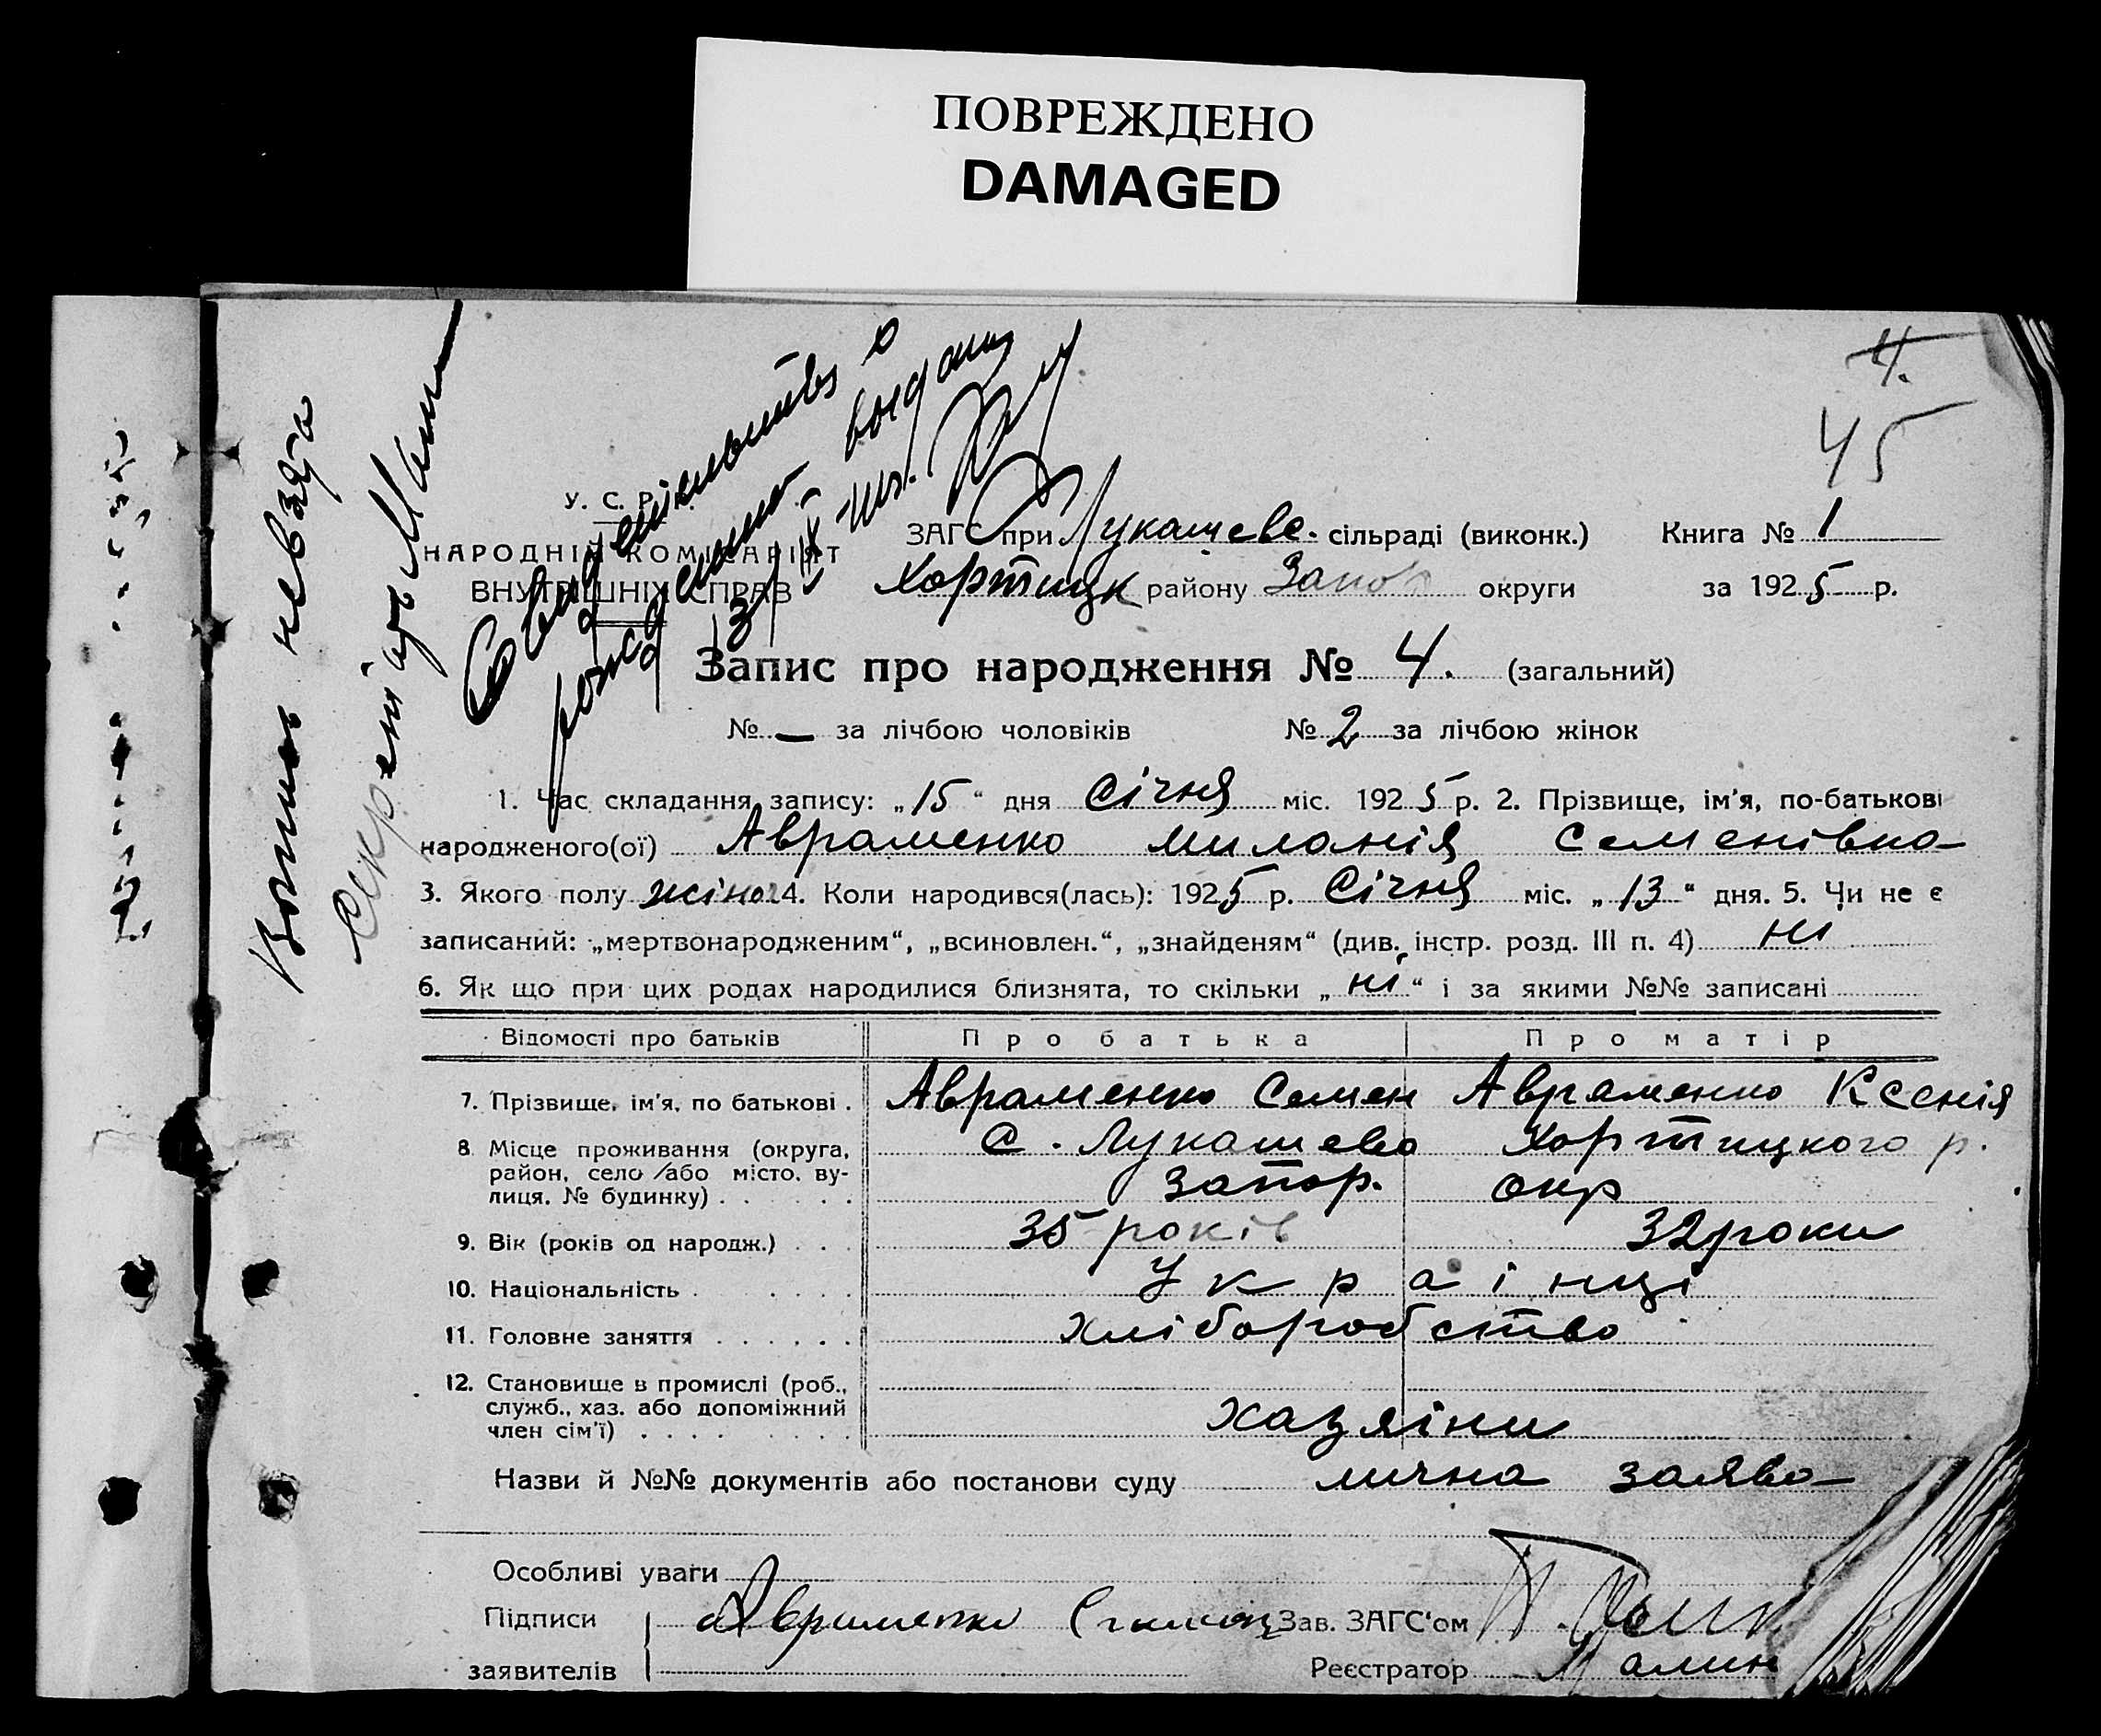 ПОВРЕЖДЕНО
DAMAGED
4.
45
Свидетельство о
рождении выдано
У. С. Р. Р.
НАРОДНІЙ КОМІСАРІЯТ
ВНУТРІШНІХ СПРАВ
ЗАГС при Лукашеве. сільраді (виконк.) Книга № 1
Хортицк району Запор округи за 1925 р.
Запис про народження № 4. (загальний)
№ — за лічбою чоловіків № 2 за лічбою жінок
1. Час складання запису: „15“ дня Січня міс. 1925 р. 2. Прізвище, ім'я, по-батькові
народженого(ої) Авраменко Миланія Семенівна
3. Якого полу жіноч 4. Коли народився(лась): 1925 р. Січня міс. „13“ дня. 5. Чи не є
записаний: „мертвонародженим“, „всиновлен.“, „знайденям“ (див. інстр. розд. III п. 4) ні
6. Як що при цих родах народилися близнята, то скільки „ні“ і за якими №№ записані
Відомості про батьків Про батька Про матір
7. Прізвище, ім'я, по батькові . Авраменко Семен Авраменко Ксенія
8. Місце проживання (округа, с. Лукашево Хортицкого р.
район, село /або місто, ву-
лиця, № будинку) . . . . . Запор. окр
9. Вік (років од народж.) . . . 35 років 32 роки
10. Національність . . . . . Українці
11. Головне заняття . . . . . . Хліборобство
12. Становище в промислі (роб.,
служб., хаз. або допоміжний
член сім'ї) . . . . . . . . хазяіни
Назви й №№ документів або постанови суду лична заява
Особливі уваги
Підписи Авраменко Зав. ЗАГС'ом
заявителів Реєстратор